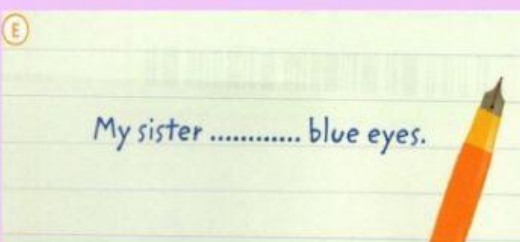 E
My sister ............ blue eyes.